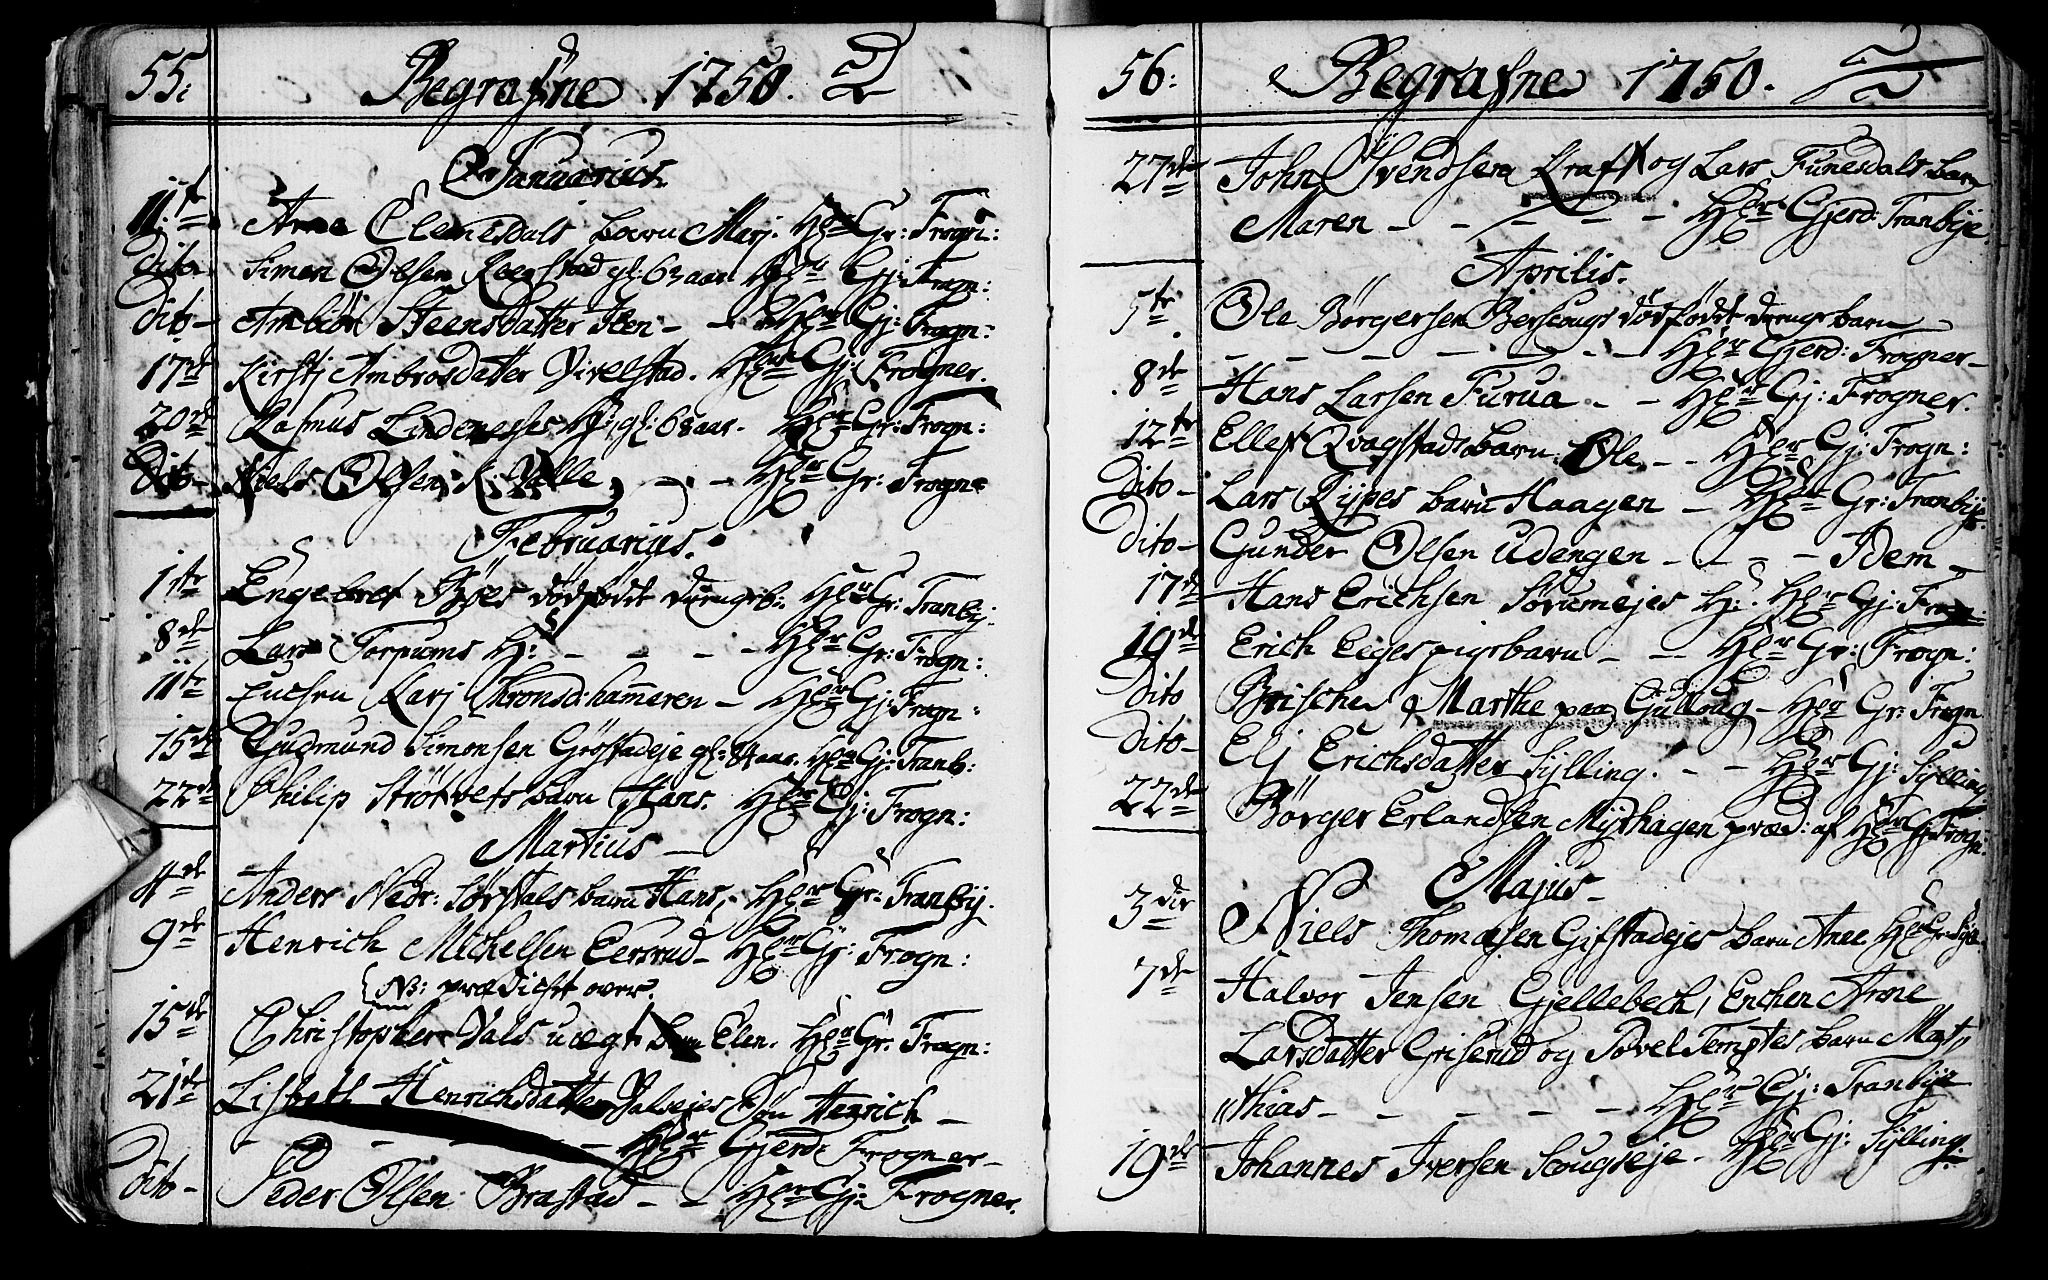 55:
Begrafne 1750.
Januarius.
11te Arne Clemesdals barn Marj. Hr Gr: Frogn:
Dito Simen Olsen gl: 62 aar. Hr Gj: Frogn:
Dito – Ambiör Steensdatter Ilen – – Hr Gj: Frogn:
17de Kirstj Ambrosdatter Vivelstad. Hr Gj: Frogner.
20de Rasmus Lindenesses H: gl: 68 aar. Hr Gr: Frogn:
Dito – Niels Olsen Valle, – – Hr Gr: Frogn:
Februarius.
1te Engebret Byes dödfödt drengeb: Hr Gr: Tranbij.
8de Lars Torpums H: – – – – Hr Gr: Frogn:
11te Enchen Karj Thronsd: hammeren – Hr Gj: Frogn:
15de Gudmund Simonsen Gröstadeje gl: 84 aar. Hr Gj: Tranb:
22de Philip Strötvets barn Hans. Hr Gj: Frogn:
Martius –
4de Anders Nedr: Sörstals barn Hans, – Hr Gr: Tranbij.
9de Henrich Michelsen Eersrud – Hr Gj: Frogn:
NB: prædichet over.
15de Christopher Dals uægt barn Elen. Hr Gr. Frogn:
21de Lisbeth Henrichsdatter Valsejes Sön Henrich –
– – – – Hr Gjerd: Frogner –
Dito – Peder Olsen Brastad – – Hr Gj: Frogner.
56:
Begrafne 1750.
27de John Svendsen Kraft og Lars Funesdals barn
Maren – – – – – Hr Gjerd: Tranbije.
Aprilis.
5te Ole Börgersen Berscougs dödfödt drengebarn –
– – – – – – – Hr Gjerd: Frogner –
8de Hans Larsen Furua – – Hr Gj: Frogner.
12te Ellef Qvagstads barn Ole – – Hr Gj: Frogn:
Dito – Lars Rijpes barn Haagen – Hr Gr: Tranbije
Dito – Gunder Olsen Udengen – – – – Idem –
17de Hans Erichsen Sörumejes H: Hr Gj: Frogn:
19de Erich Eiges pigebarn – – Hr Gr: Frogn:
Dito Brische Marthe paa Gulloug – Hr Gr: Frogn
Dito – Elj Erichsdatter Sylling. – – Hr Gj: Sylling
22de Börger Erlandsen Myrhagen præd: af Hr Gr: Frogn:
Majus –
3die Niels Thomæsen Gifstadejes barn Anne Hr Gr: Syll:
7de Halvor Jensen Gjellebech, Enchen Anne
Larsdatter Griserud og Povel Temptes barn Mat,
"thias – – – – – Hr Gj: Tranbije
19de Johannes Iversen Scougseje. Hr Gj: Sylling.